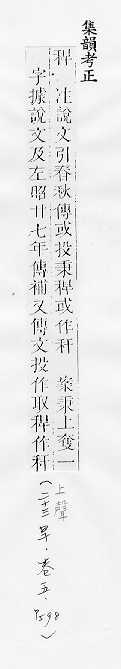 集韻考正
稈 注說文引春秋傳或投秉稈或作秆 案秉上奪一
字據說文及左昭廿七年傳補又傳文投作取稈作秆
上聲
(二十三旱．卷五．P598)